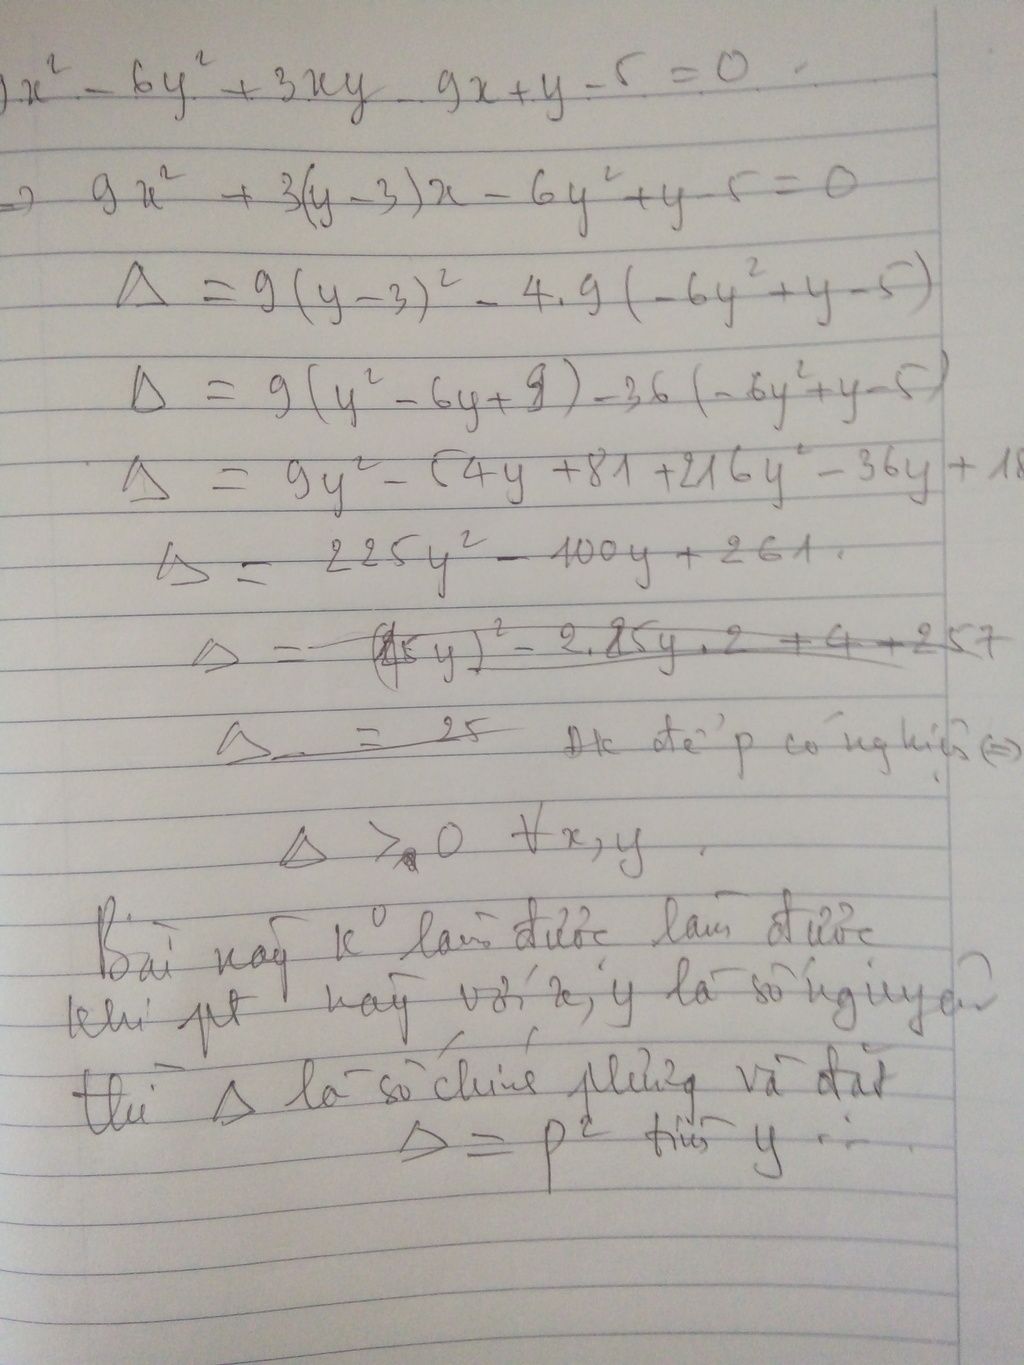 9x² - 6y² + 3xy - 9x + y - 5 = 0
=> 9x² + 3(y-3)x - 6y² + y - 5 = 0
Δ = 9(y-3)² - 4.9(-6y² + y - 5)
Δ = 9(y² - 6y + 9) - 36(-6y² + y - 5)
Δ = 9y² - 54y + 81 + 216y² - 36y + 18
Δ = 225y² - 100y + 261.
Δ = (15y)² - 2.15y.2 + 4 + 257
Δ = 25 ĐK để p có nghiệm (=)
Δ ≥ 0 ∀x,y.
Bài này k° làm được làm được
khi pt này với x, y là số nguyên
thì Δ là số chính phương và đặt
Δ = p² tìm y ...